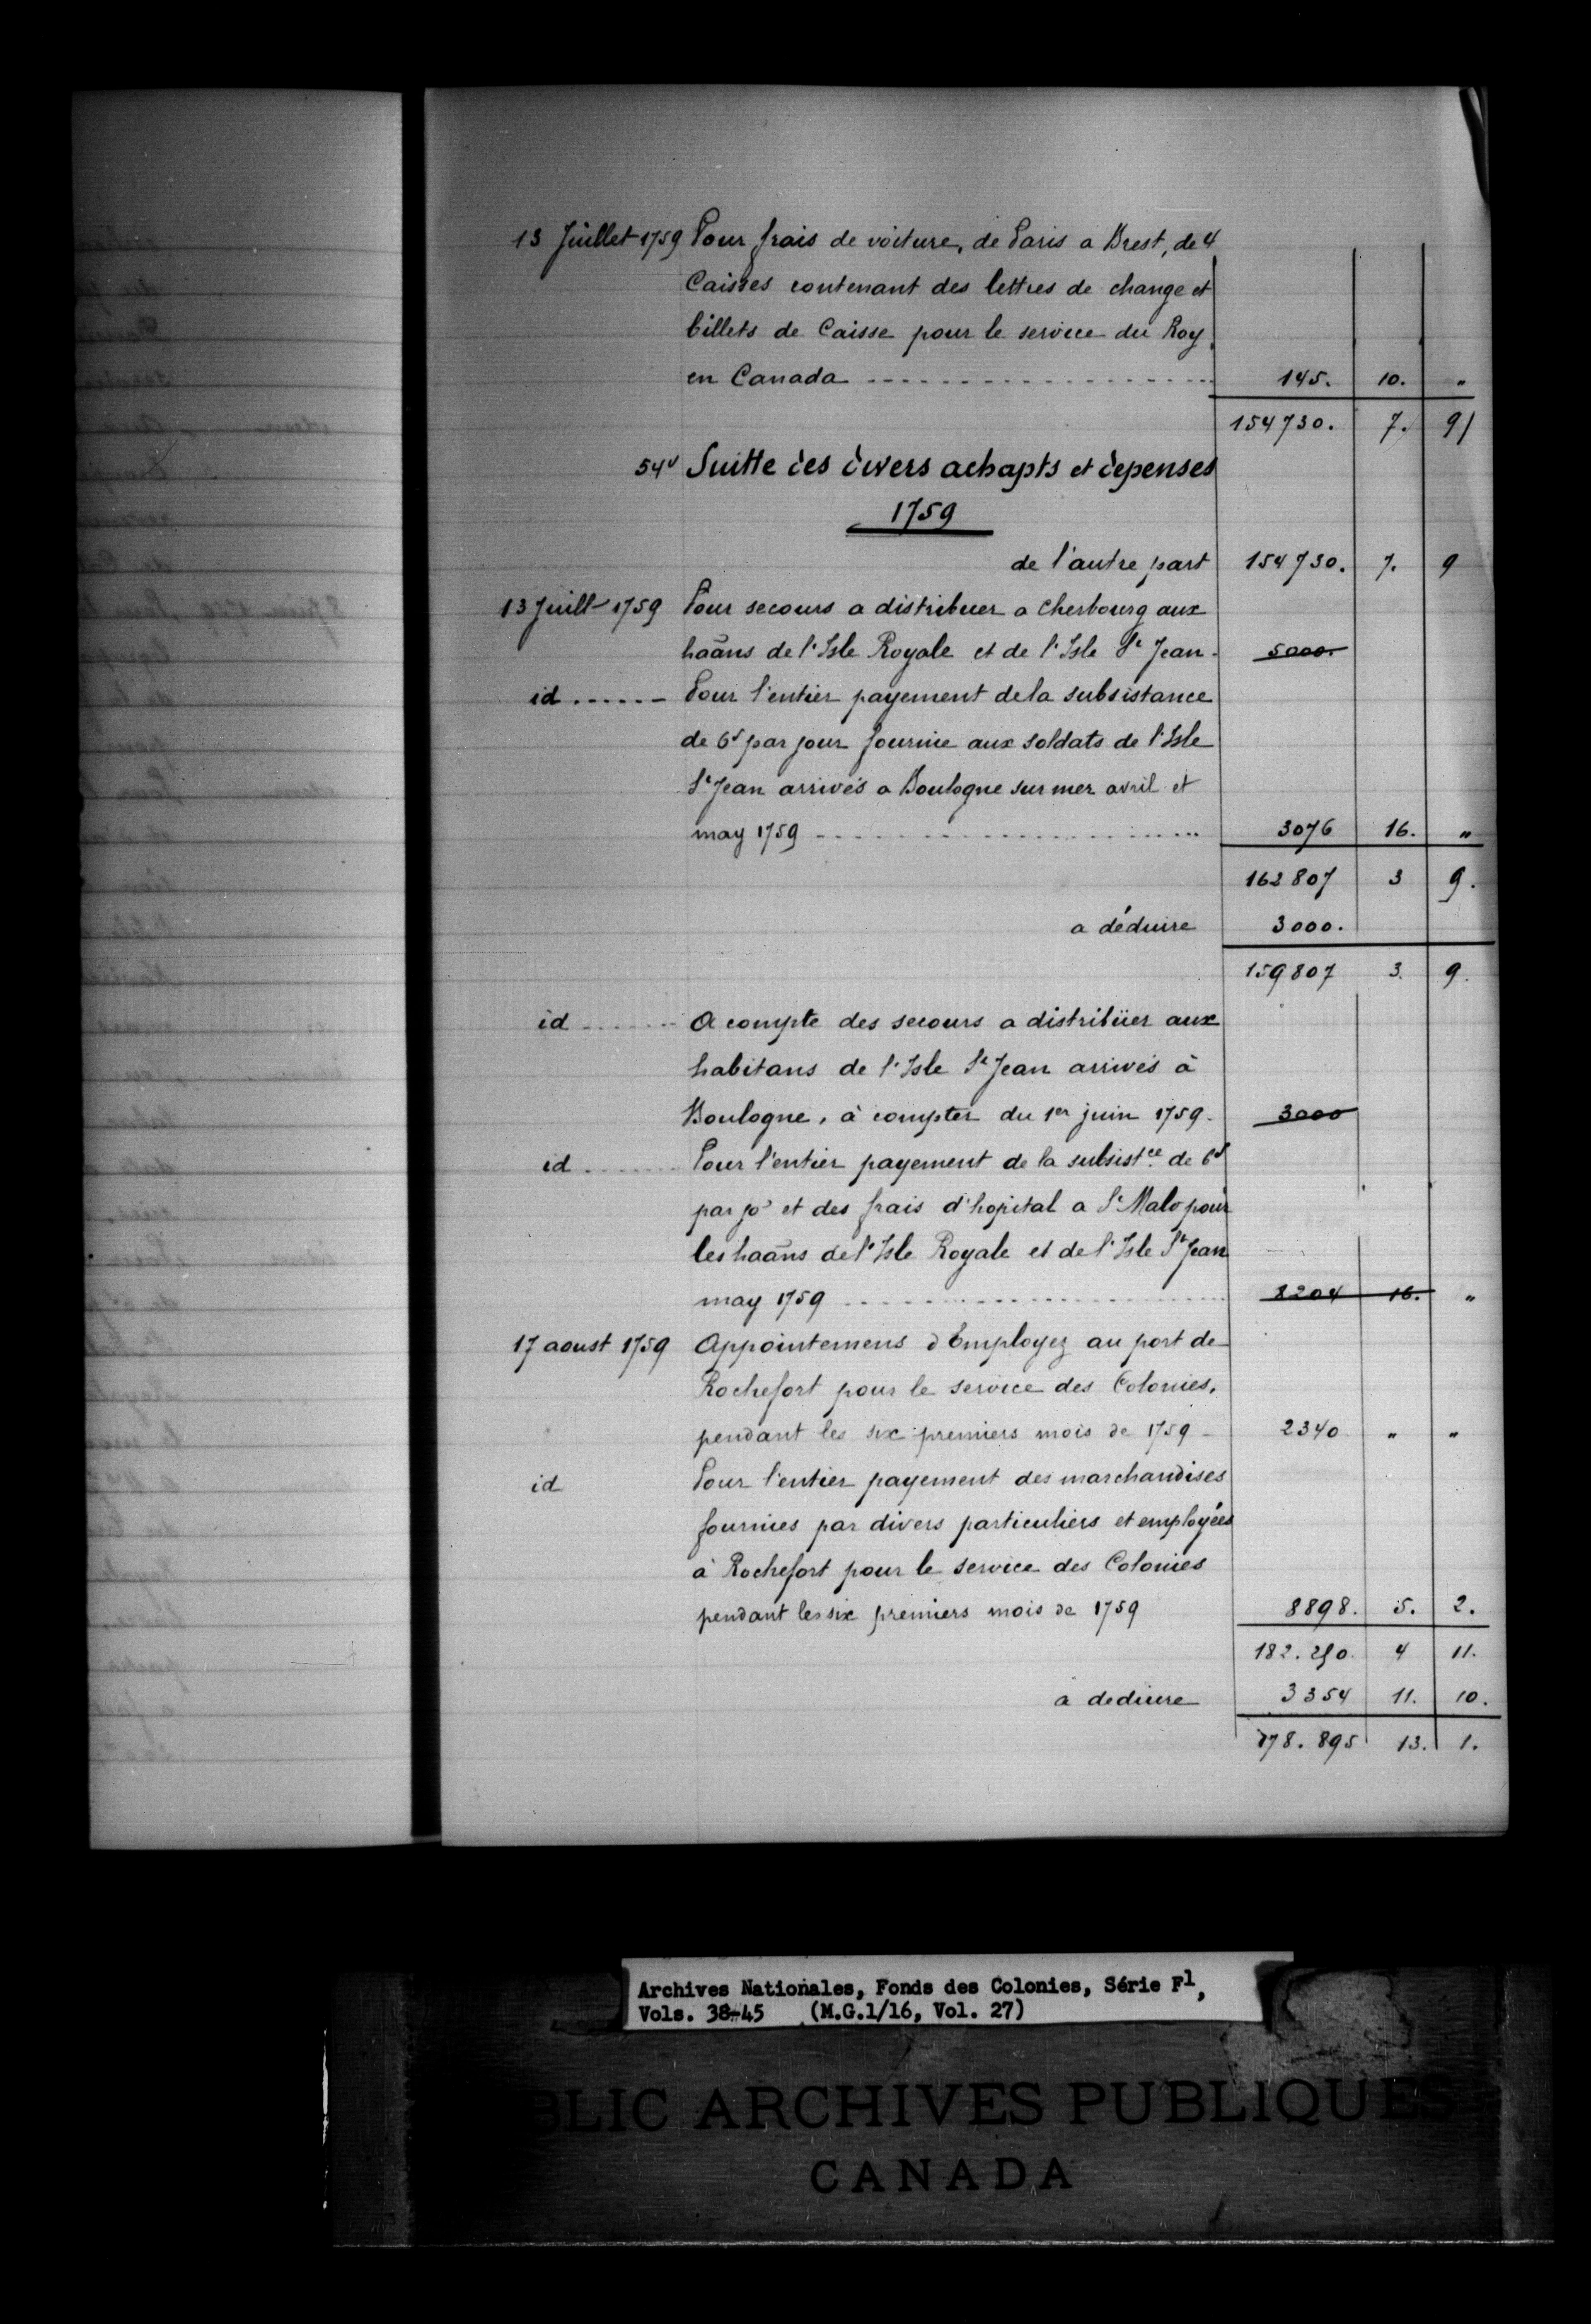 13 Juillet 1759 Pour frais de voiture, de Paris a Brest, de 4
Caisses contenant des lettres de change et
billets de Caisse pour le service du Roy
en Canada 145. 10. "
154730. 7. 9
54v Suitte des divers achapts et depenses
1759
de l'autre part 154730. 7. 9
13 Juillt 1759 Pour secours a distribuer a Cherbourg aux
haãns de l'Isle Royale et de l'Isle St Jean. 5000.
id ...... Pour l'entier payement de la subsistance
de 6s par jour fournie aux soldats de l'Isle
St Jean arrivés a Boulogne sur mer avril et
may 1759 3076 16. "
162807 3 9.
a déduire 3000.
159807 3. 9.
id ...... A compte des secours a distribüer aux
habitans de l'Isle St Jean arrivés à
Boulogne, à compter du 1er juin 1759. 3000
id ...... Pour l'entier payement de la subsistce de 6s
par jor et des frais d'hopital a St Malo pour
les haãns de l'Isle Royale et de l'Isle St Jean
may 1759 8204 16. "
17 aoust 1759 Appointemens d'Employez au port de
Rochefort pour le service des Colonies,
pendant les six premiers mois de 1759 2340 " "
id Pour l'entier payement des marchandises
fournies par divers particuliers et employées
à Rochefort pour le service des Colonies
pendant les six premiers mois de 1759 8898. 5. 2.
182.250. 4 11.
a deduire 3354 11. 10.
178.895 13. 1.
Archives Nationales, Fonds des Colonies, Série F1,
Vols. 38-45 (M.G.1/16, Vol. 27)
BLIC ARCHIVES PUBLIQUES
CANADA